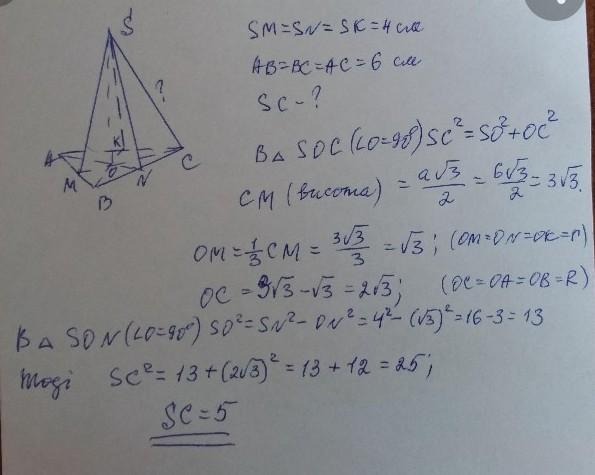 S
?
K
A
O
C
M
N
B
SM=SN=SK=4 см
AB=BC=AC=6 см
SC-?
В △ SOC (∠O=90°) SC²=SO²+OC²
CM (висота) = a√3/2 = 6√3/2 = 3√3.
OM = 1/3 CM = 3√3/3 = √3; (OM=ON=OK=r)
OC = 3√3-√3 = 2√3; (OC=OA=OB=R)
В △ SON (∠O=90°) SO²=SN²-ON²=4²-(√3)²=16-3=13
Тоді SC²=13+(2√3)²=13+12=25;
SC=5